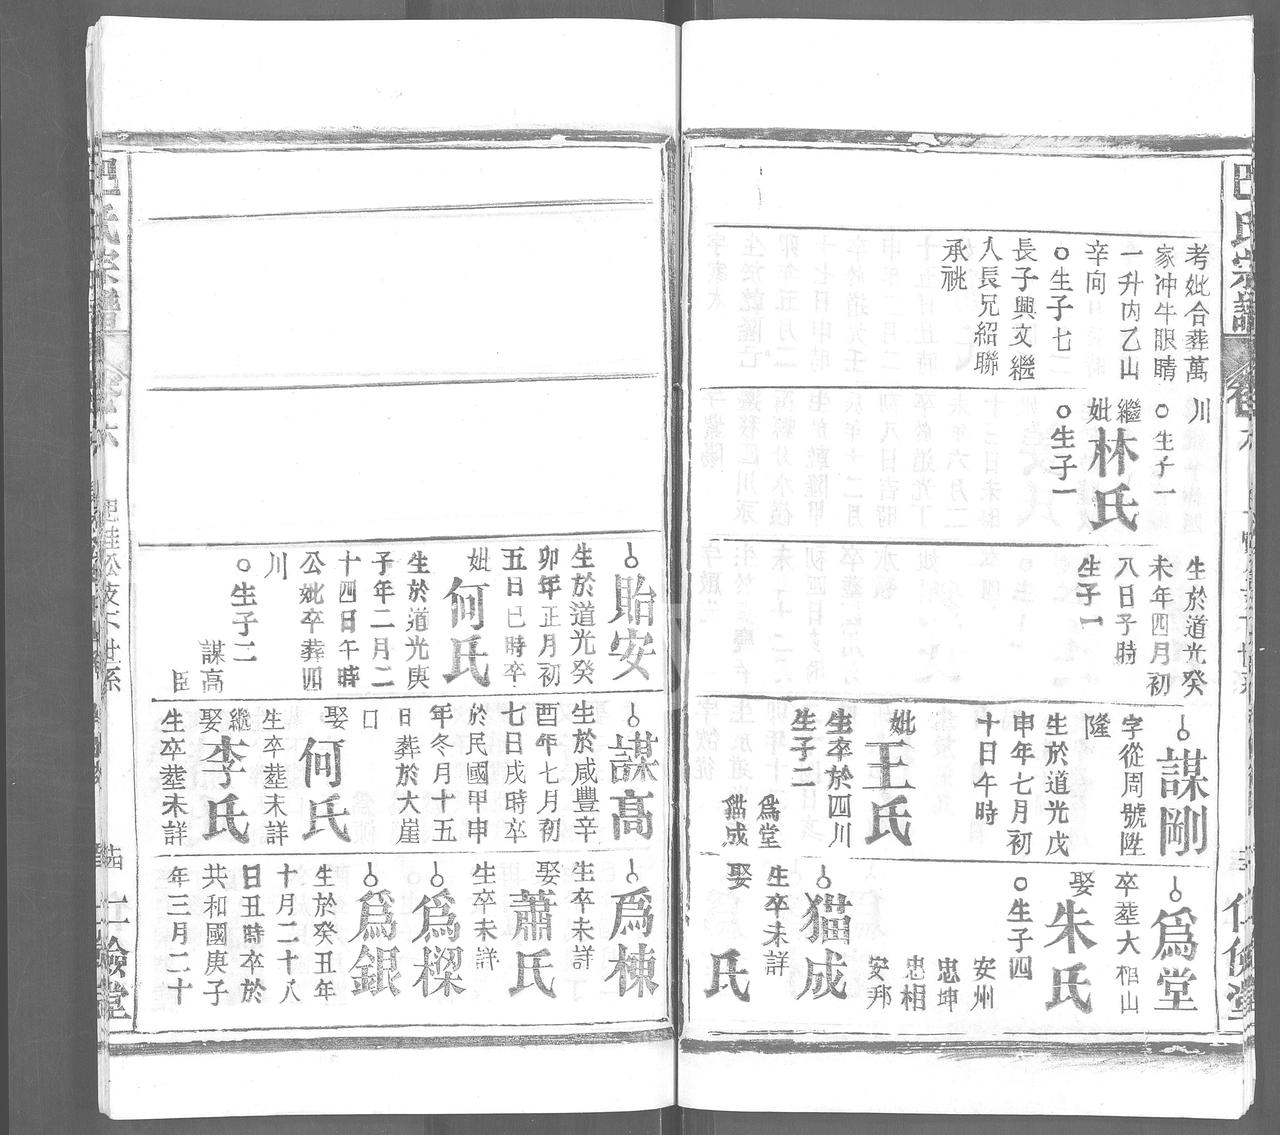 巴氏宗譜
考妣合葬萬
家冲牛眼睛
一升内乙山
辛向
○生子七
長子興文繼
人長兄紹聯
承祧
川
○生子一
繼妣林氏
○生子一
生於道光癸
未年四月初
八日子時
生子一
謀剛
字從周號陞
隆
生於道光戊
申年七月初
十日午時
妣王氏
生卒於四川
生子二
爲堂
貓成
爲堂
卒葬大相山
娶朱氏
○生子四
安州
忠坤
忠相
安邦
貓成
生卒未詳
娶 氏
貽安
生於道光癸
卯年正月初
五日巳時卒
妣何氏
生於道光庚
子年二月二
十四日午時
公妣卒葬四
川
○生子二
謀高
臣
謀高
生於咸豐辛
酉年七月初
七日戌時卒
於民國甲申
年冬月十五
日葬於大崖
口
娶何氏
生卒葬未詳
繼娶李氏
生卒葬未詳
爲棟
生卒未詳
娶蕭氏
生卒未詳
爲樑
爲銀
生於癸丑年
十月二十八
日丑時卒於
共和國庚子
年三月二十
巴氏宗譜
卷六